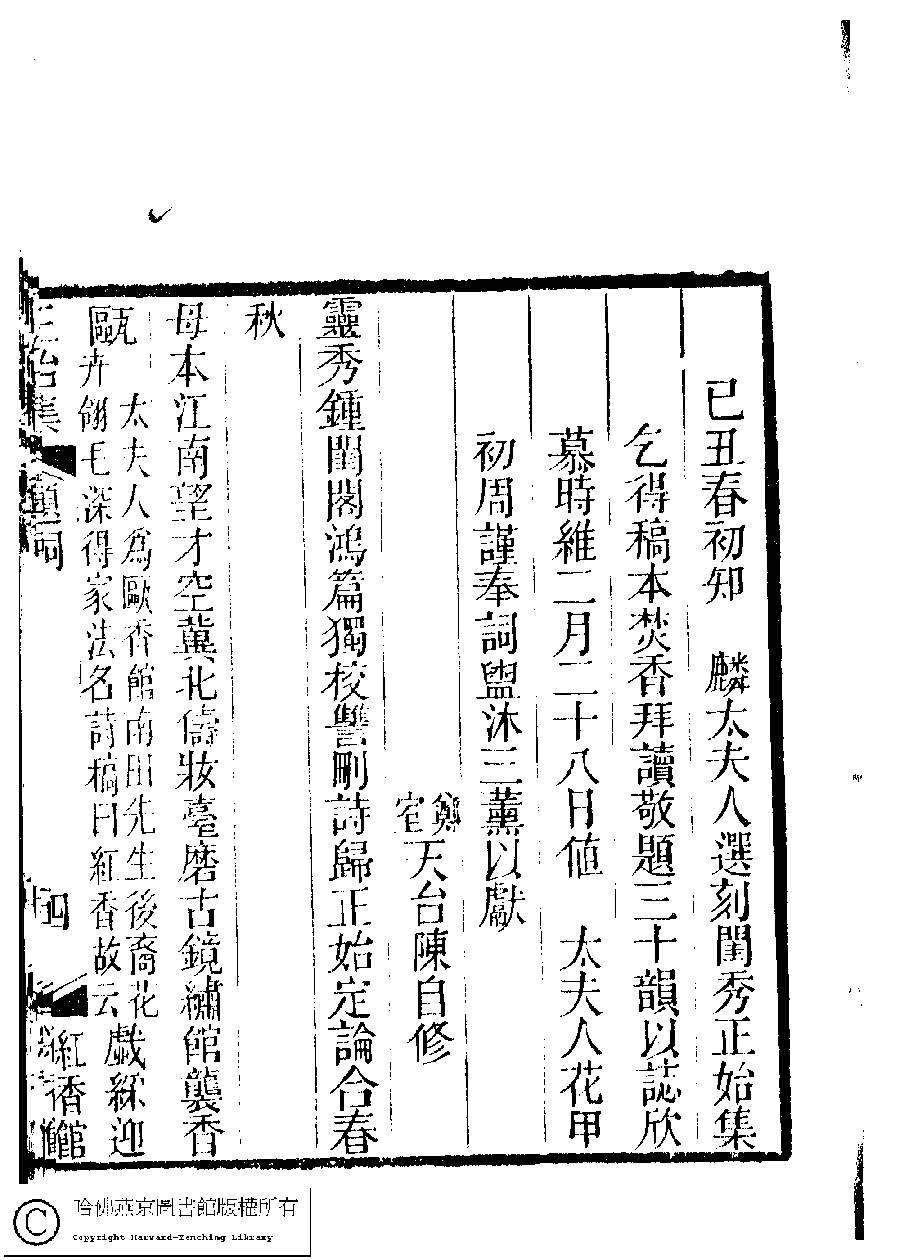 己丑春初知　麟太夫人選刻閨秀正始集
乞得稿本焚香拜讀敬題三十韻以誌欣
慕時維二月二十八日値　太夫人花甲
初周謹奉詞盥沐三薰以獻
室天台陳自修
靈秀鍾閨閣鴻篇獨校讐刪詩歸正始定論合春
秋
母本江南望才空冀北儔妝臺磨古鏡繡館襲香
甌
太夫人爲甌香館南田先生後裔花
卉翎毛深得家法名詩稿曰紅香故云
戲綵迎
正始集
題詞
四
紅香館
哈佛燕京圖書館版權所有
Copyright Harvard-Yenching Library